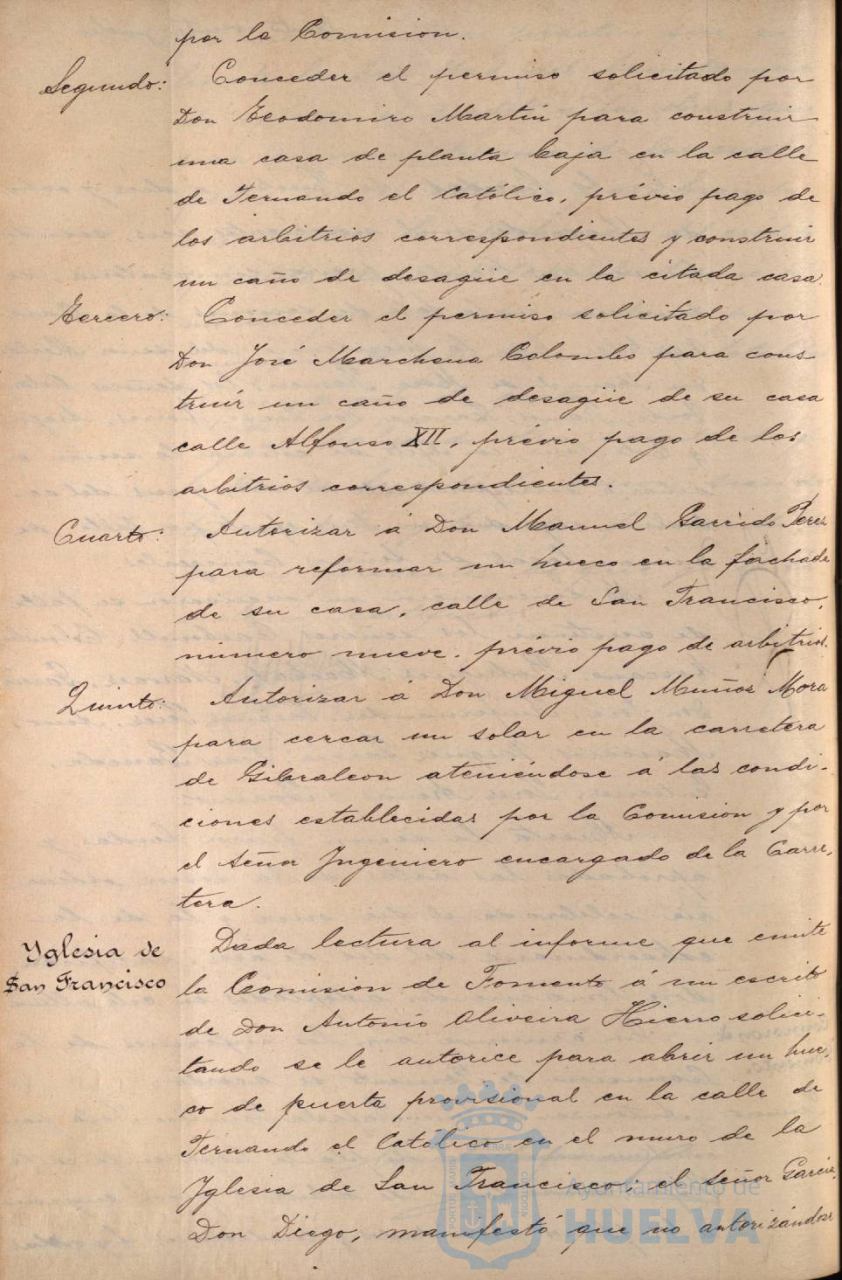 por la Comision.
Segundo: Conceder el permiso solicitado por
Don Teodomiro Martín para construir
una casa de planta baja en la calle
de Fernando el Católico, prévio pago de
los árbitrios correspondientes y construir
un caño de desagüe en la citada casa.
Tercero: Conceder el permiso solicitado por
Don José Marchena Colombo para cons-
truir un caño de desagüe de su casa
calle Alfonso XII, prévio pago de los
arbitrios correspondientes.
Cuarto: Autorizar á Don Manuel Garrido Perez
para reformar un hueco en la fachada
de su casa, calle de San Francisco,
número nueve, prévio pago de arbitrios.
Quinto: Autorizar á Don Miguel Muñoz Mora
para cercar un solar en la carretera
de Gibraleon ateniéndose á las condi-
ciones establecidas por la Comision y por
el Señor Yngeniero encargado de la Carre-
tera.
Yglesia de
San Francisco
Dada lectura al informe que emite
la Comision de Fomento á un escrito
de Don Antonio Oliveira Hierro solici-
tando se le autorice para abrir un hue-
co de puerta provisional en la calle de
Fernando el Católico en el muro de la
Yglesia de San Francisco; el Señor García
Don Diego, manifestó que no autorizándose
Ayuntamiento de
HUELVA